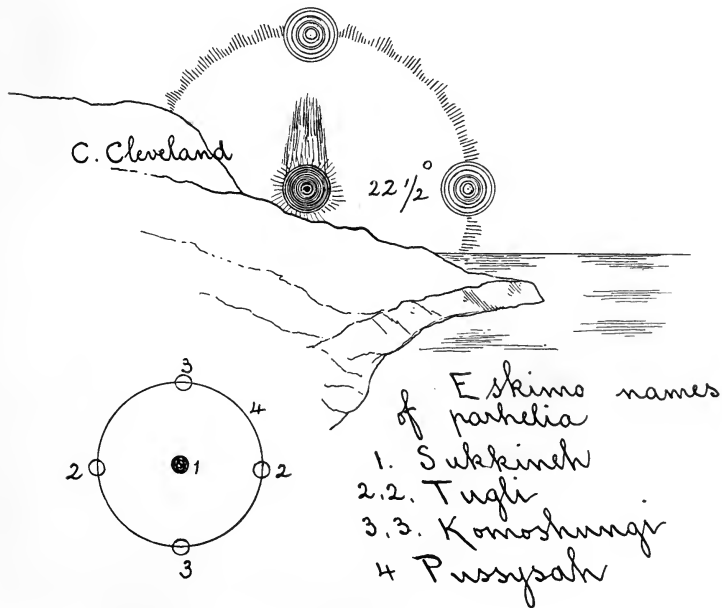 C. Cleveland
22 1/2°
3
4
2
1
2
3
Eskimo names
of parhelia
1. Sukkineh
2.2. Tugli
3.3. Komoshungi
4 Pussysah